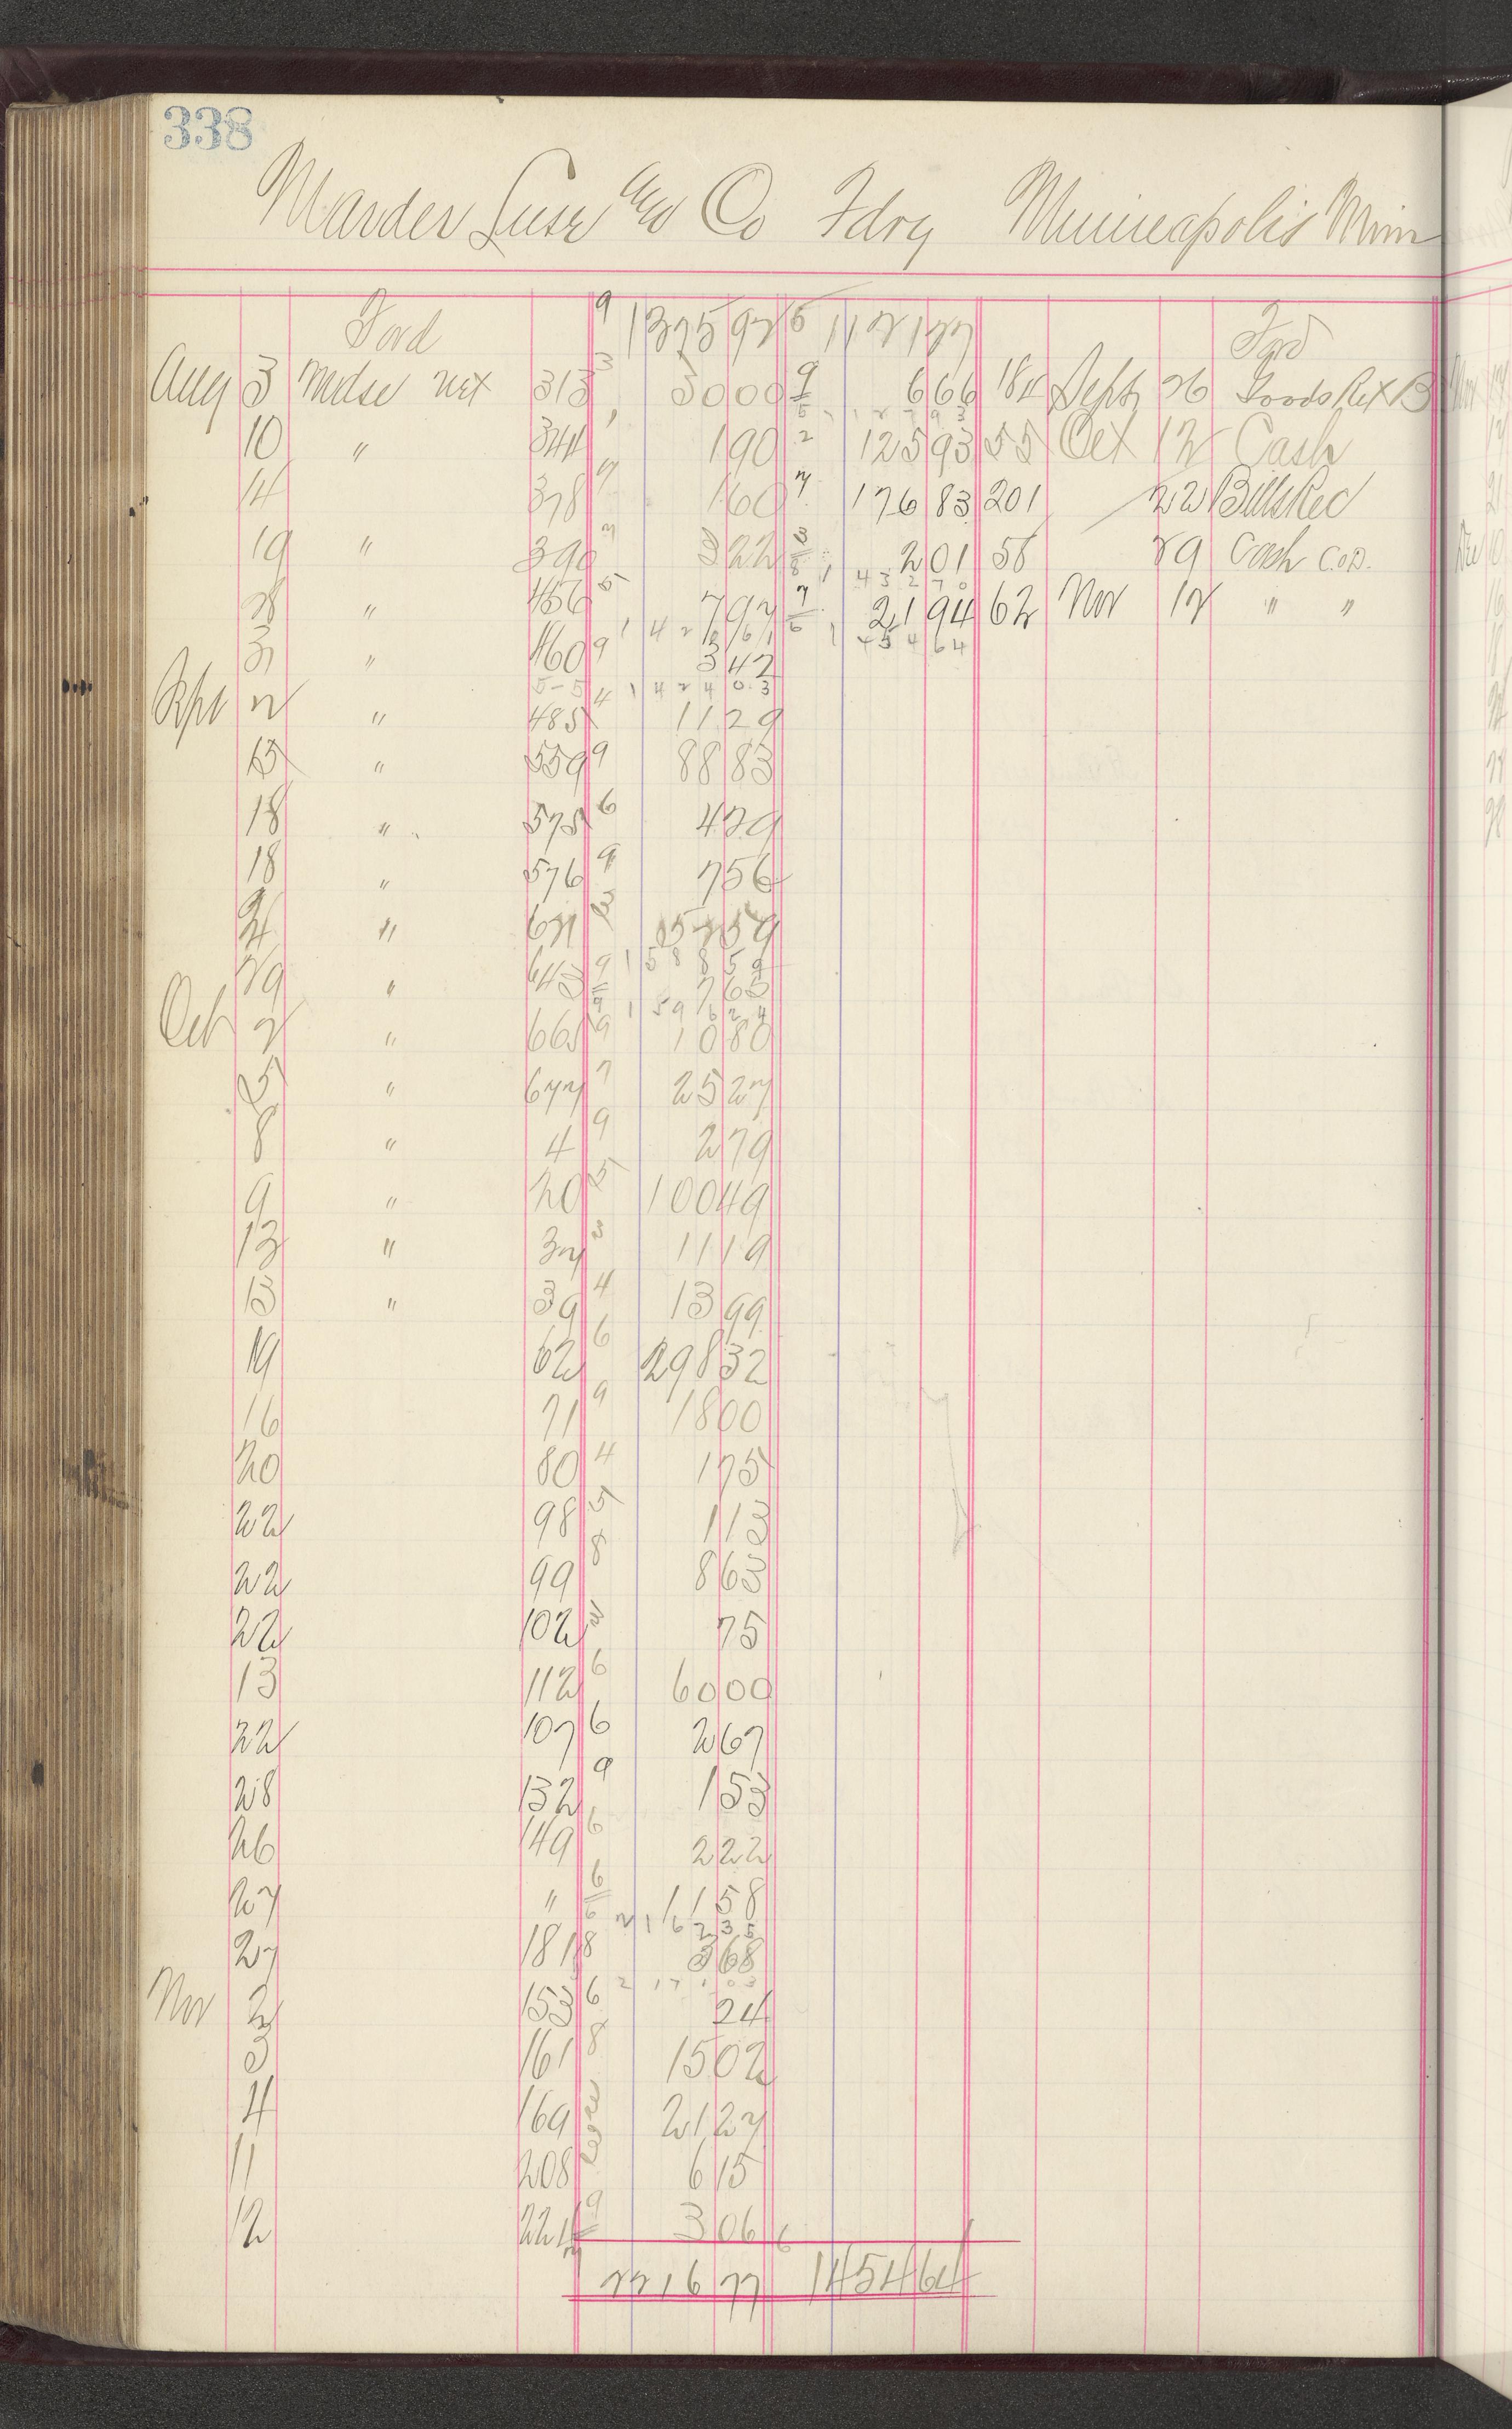 338
Marder Luse and Co Fdry Minneapolis Minn
Ford 9 1375 92 5 1121 27 Ford
Aug 3 Mdse net 313 3 30 00 9 6 66 184 Sept 26 Goods Ret B
10 " 344 1 90 2 125 93 55 Oct 12 Cash
14 378 1 60 7 176 83 201 22 Bills Rec
19 " 390 3 22 3 2 01 58 29 Cash C.O.D.
1 43 2 70
28 " 456 5 7 97 7 21 94 62 Nov 12 " "
1 42 0 61 1 45 4 64
31 " 460 9 3 42
1 4 2 4 0 3
Sept 2 " 485 4 11 29
15 " 559 9 88 83
18 " 575 6 4 29
18 " 576 9 7 56
24 " 621 57 59
1 5 8 8 5 9
29 " 643 9 7 65
1 59 6 24
Oct 2 " 665 9 10 80
5 " 677 7 25 27
8 " 4 9 2 79
9 " 20 5 100 49
13 " 37 3 11 19
13 " 39 4 13 99
19 62 6 298 32
16 71 9 18 00
20 80 4 1 75
22 98 5 1 13
22 99 8 8 63
22 102 75
13 112 6 60 00
22 107 6 2 67
28 132 9 1 53
26 149 6 2 22
27 " 6 11 58
2 1 6 2 3 5
27 181 8 3 68
Nov 2 153 6 24
3 161 8 15 02
4 169 21 27
11 208 6 15
12 221 9 3 06
2216 77 1454 64